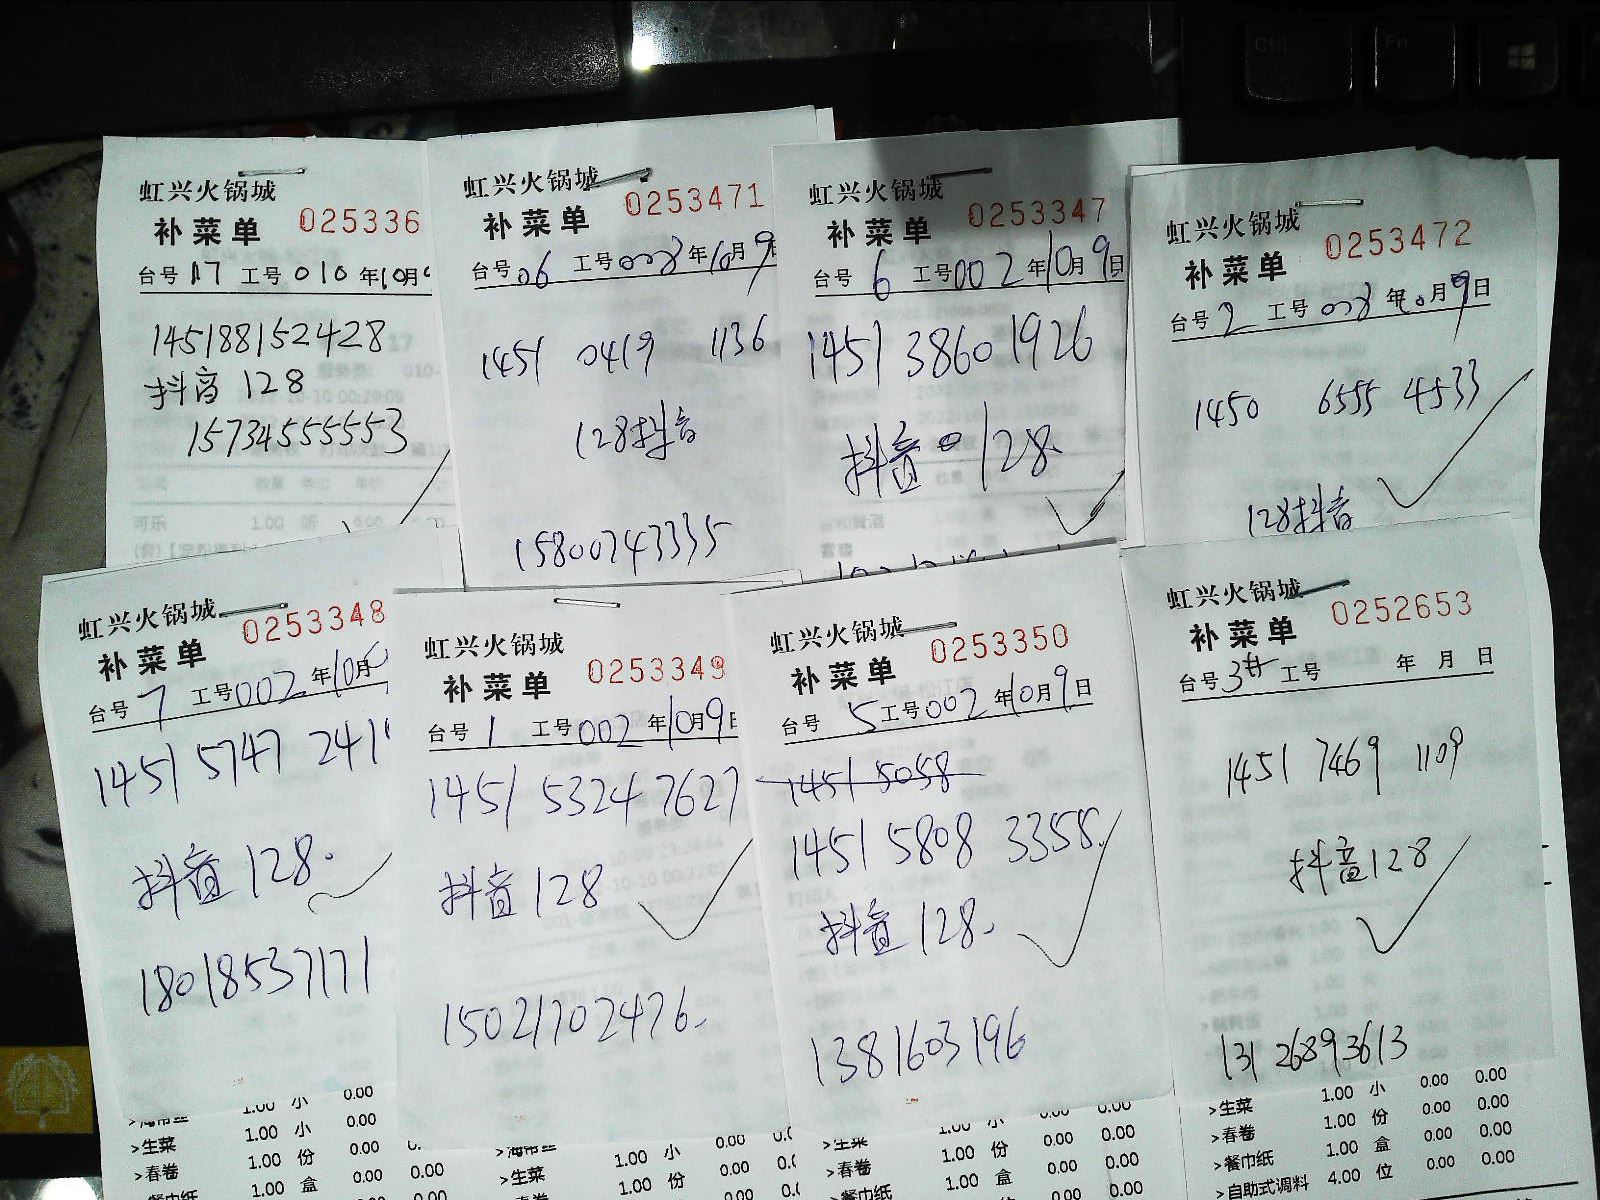 虹兴火锅城
补菜单 025336
台号 17 工号 010 年10月
145188152428
抖音 128
15734555553
可乐 1.00 听 6.00
虹兴火锅城
补菜单 0253471
台号 06 工号 008 年10月9日
1451 0419 1136
128抖音
15800743335
虹兴火锅城
补菜单 0253347
台号 6 工号 002 年10月9日
1451 3860 1926
抖音 128.
虹兴火锅城
补菜单 0253472
台号 2 工号 008 年10月9日
1450 6555 4533
128抖音
虹兴火锅城
补菜单 0253348
台号 7 工号 002 年10月
1451 5747 241
抖音 128.
18018537171
虹兴火锅城
补菜单 0253349
台号 1 工号 002 年10月9日
1451 5324 7627
抖音 128
15021702476.
虹兴火锅城
补菜单 0253350
台号 5 工号 002 年10月9日
1451 5058
1451 5808 3358.
抖音 128.
1381603196
虹兴火锅城
补菜单 0252653
台号 3# 工号 年 月 日
1451 7469 1109
抖音128
131 26893613
>海带丝 1.00 小 0.00
>生菜 1.00 小 0.00
>春卷 1.00 份 0.00 0.00
>餐巾纸 1.00 盒 0.00 0.00
>海带丝 1.00 小 0.00
>生菜 1.00 份 0.00
>春卷
>生菜 1.00 小 0.00 0.00
>春卷 1.00 份 0.00 0.00
>餐巾纸 1.00 盒 0.00 0.00
>生菜 1.00 小 0.00 0.00
>春卷 1.00 份 0.00 0.00
>餐巾纸 1.00 盒 0.00 0.00
>自助式调料 4.00 位 0.00 0.00
Ctrl
Fn